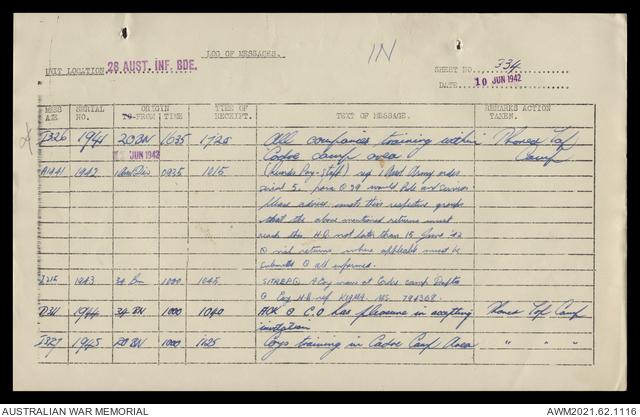 LOG OF MESSAGES.
IN
UNIT LOCATION 28 AUST. INF. BDE.
SHEET NO. 334
DATE 10 JUN 1942
MESSAGE SERIAL NO. ORIGIN TO-FROM TIME TIME OF RECEIPT. TEXT OF MESSAGE. REMARKS ACTION TAKEN.
1941 20 BN 1635 1725 All companies training within Phoned Top
Cadre camp area Camp
11 JUN 1942
A1441 1942 0935 1015 ref 1 Aust Army order
serial 52 para would Pole and Services
please advise units this respective groups
that the above mentioned returns must
reach this H.Q not later than 15 June '42
nil returns where applicable must be
submitted all informed.
1943 34 Bn 1000 1045 SITREP A Coy now at Cadre camp
Coy H.Q ref KIAMA 784368.
1944 34 BN 1000 1040 C.O has pleasure in accepting Phoned Top Camp
invitation
1945 20 BN 1000 1125 Coys training in Cadre Camp Area " " "
AUSTRALIAN WAR MEMORIAL
AWM2021.62.1116